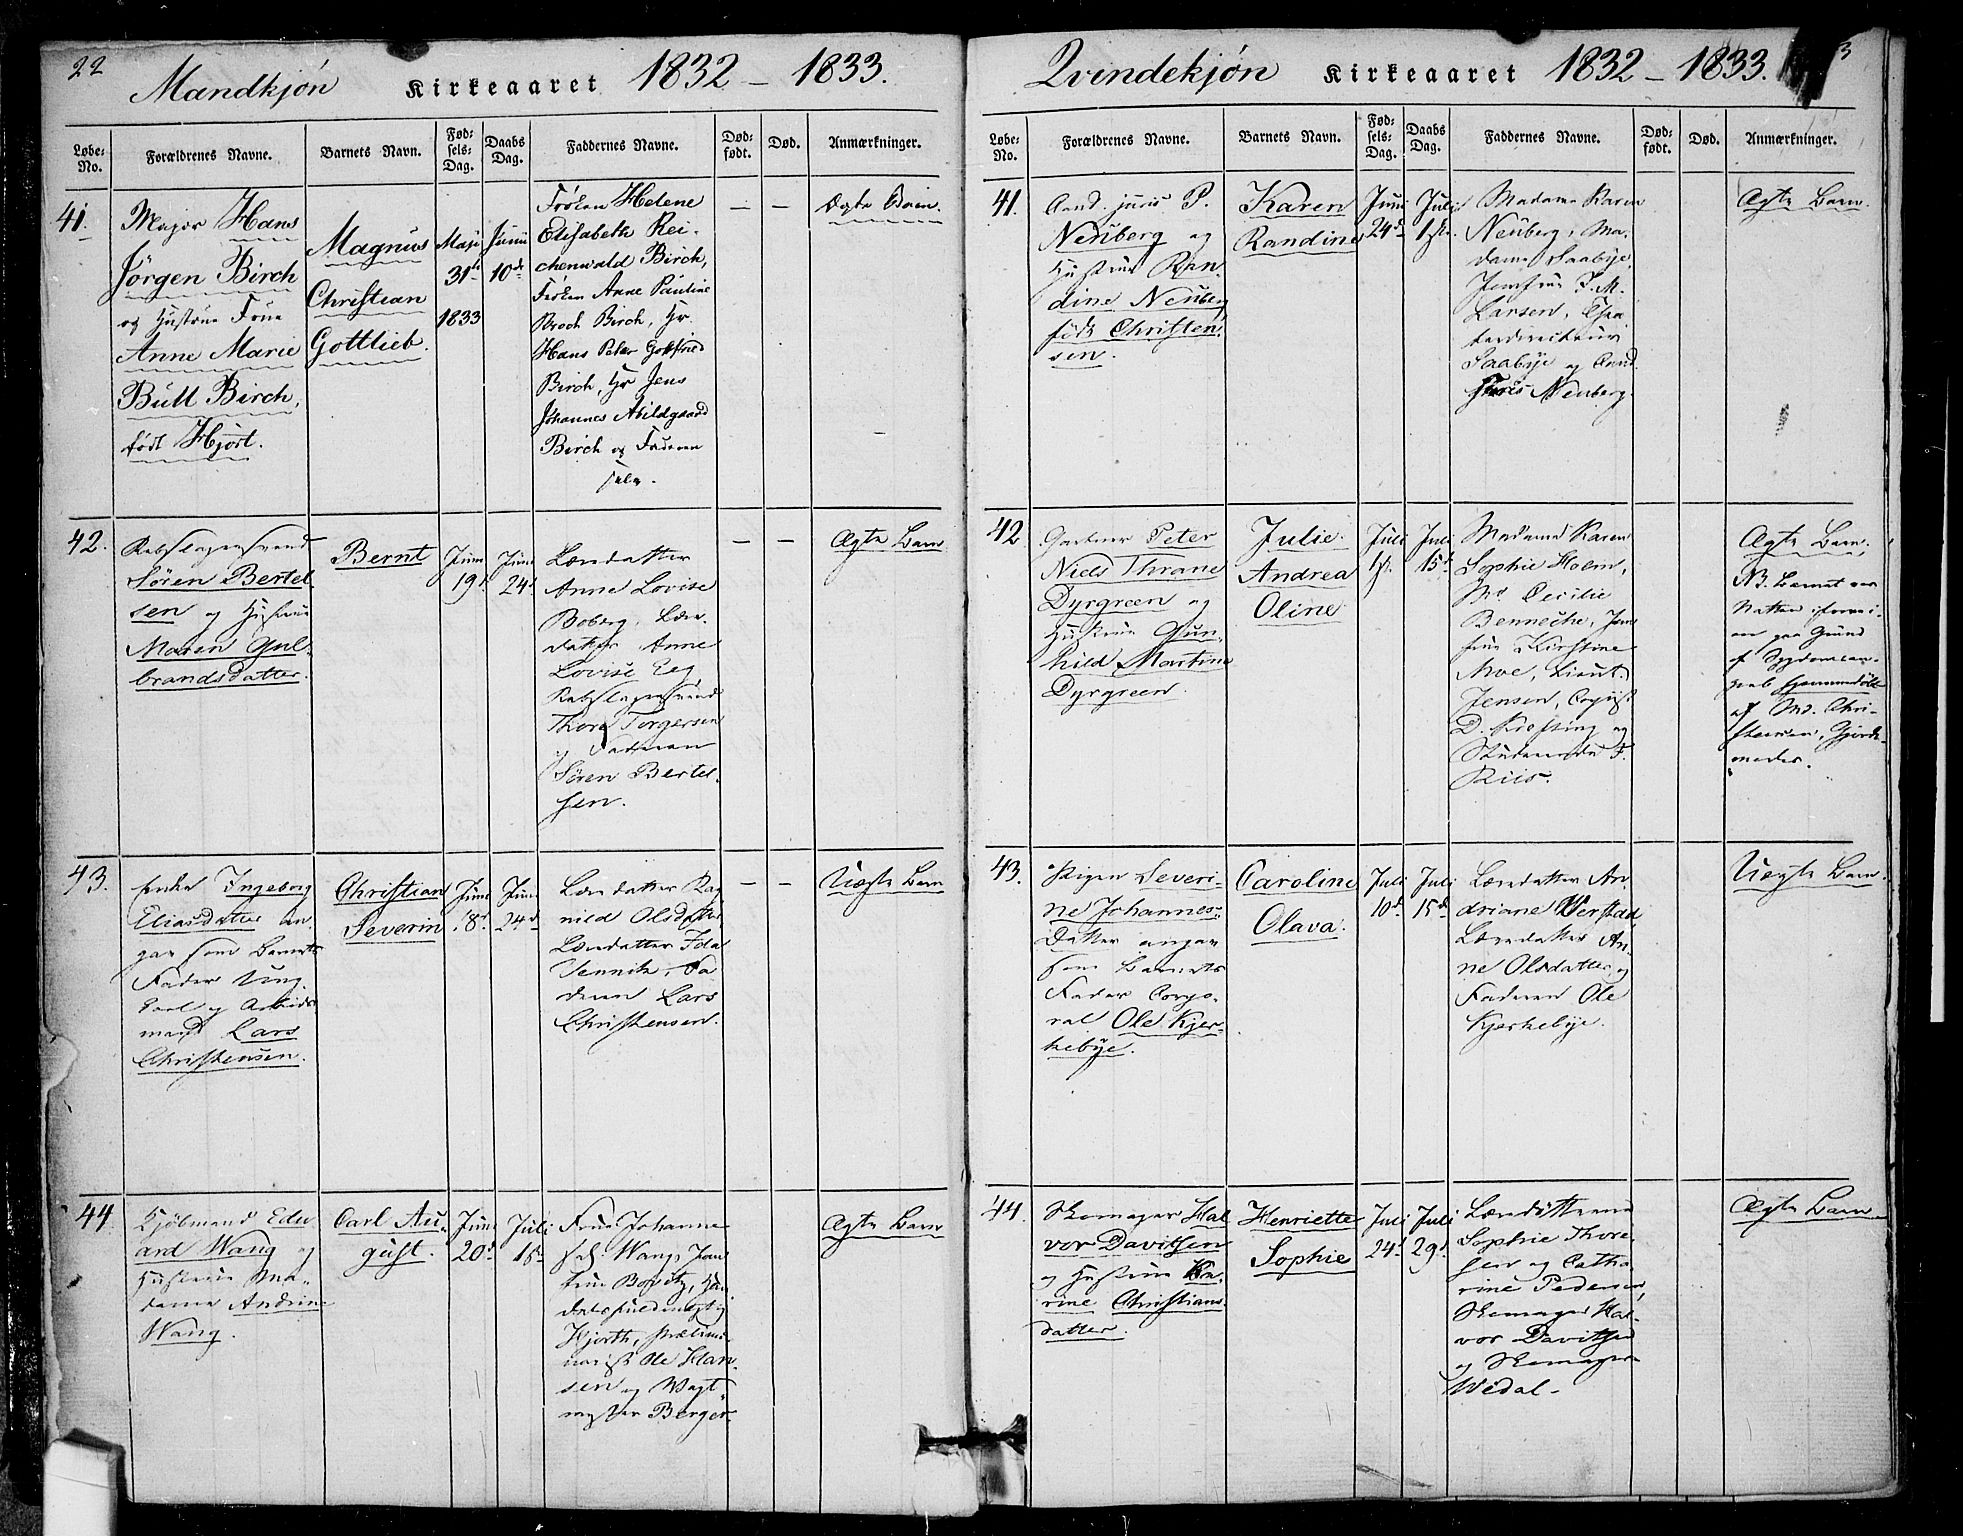 22
Mandkjøn Kirkeaaret 1832 – 1833.
Løbe-No. Forældrenes Navne. Barnets Navn. Fød-sels-Dag. Daabs Dag. Faddernes Navne. Død-født. Død. Anmærkninger.
41.
Major Hans
Jörgen Birch
og Hustrue Frue
Anne Marie
Bull Birch,
født Hjort.
Magnus
Christian
Gottlieb.
Maji
31te
1833
Junii
10de
Frøken Helene
Elisabeth Rei-
chenwald Birch,
Frøken Anne Pauline
Broch Birch, Hr.
Hans Peter Gottfried
Birch, Hr Jens
Johannes Abildgaard
Birch og Faderen
selv.
— —
Ægte Barn.
42.
Rebslagersvend
Sören Bertel-
sen og Hustrue
Maren Gul-
brandsdatter.
Bernt
Juni
19d
Juni
24d
Anne Lovise
Boberg,
Anne
Lovise Eeg
Rebslagersvend
Thore Torgersen
og Faderen
Sören Bertel-
sen.
— —
Ægte Barn
43.
Enke Ingeborg
Eliasdatter an-
gav som Barnets
Fader Ung-
karl og Arbeids-
mand Lars
Christensen.
Christian
Severin
Juni
8d
Juni
24d
Rag
nild Olsdatter
Ida
Jennik, Fa
deren Lars
Christensen.
— —
Uægte Barn
44.
Kjöbmand Edu-
ard Wang og
Hustrue Ma-
dame Andrine
Wang.
Carl Au-
gust.
Juni
20d
Juli
15d
Frue Johanne
Wang, Jom
frue
Hjorth,
Ole Han-
sen og Vagt-
mester Berger.
Ægte Barn
Qvindekjøn Kirkeaaret 1832 – 1833.
3
Løbe-No. Forældrenes Navne. Barnets Navn. Fød-sels-Dag. Daabs Dag. Faddernes Navne. Død-født. Død. Anmærkninger.
41.
Cand. juris P.
Neuberg og
Hustrue Ran-
dine Neuberg
född Christen-
sen.
Karen
Randine
Juni
24d
Juli
1ste
Madame Karen
Neuberg, Ma-
dame Saabye,
Jomfrue J. M.
Larsen,
Saabye og Cand.
Juris Neuberg.
Ægte Barn.
42
Gartner Peter
Niels Thrane
Dyrgreen og
Hustrue Gun-
hild Martine
Dyrgreen.
Julie
Andrea
Oline
Juli
1ste
Juli
15d
Madame Karen
Sophie Holm,
Md Cecilie
Benneche, Jom
frue Kirstine
Moe, Lieut.
Jensen, Copiist
D. Kiessing og
Studerende F.
Riis.
Ægte Barn,
NB. Barnet var
Natten iforvei-
en paa Grund
af Svagelighed
hjemmedöbt
af Md. Chri-
stensen, Gjorde-
moder.
43.
Pigen Severi-
ne Johannes-
datter angav
som Barnets
Fader Corpo-
ral Ole Kjer-
kebye.
Caroline
Olava.
Juli
10d
Juli
15d
An-
driane Verstad,
An-
ne Olsdatter, og
Faderen Ole
Kjerkebye.
Uægte Barn.
44.
Skomager Hal
vor Davidsen
og Hustrue Ka-
rine Christians-
datter.
Henriette
Sophie
Juli
24d
Juli
29d
Sophie Thore
sen og Catha
rine Pedersen,
Skomager Hal-
vor Davidsen
og Skomager
Wedal –
Ægte Barn.